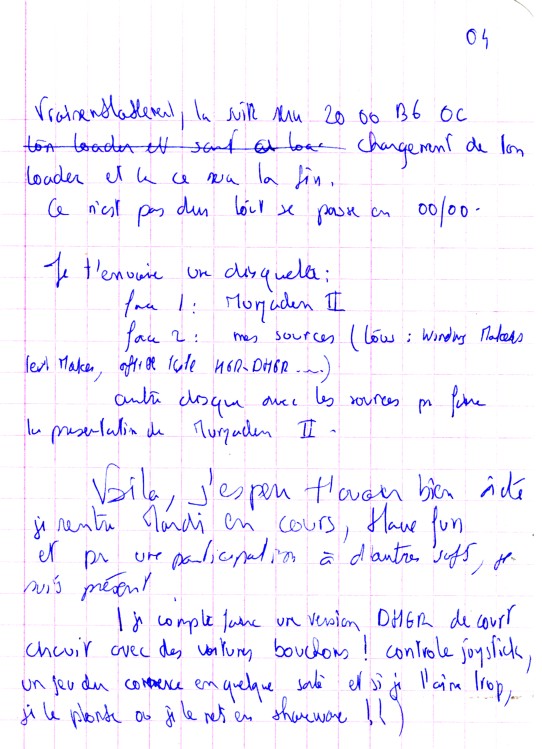 04
Vraisemblablement, la suite sera 20 00 B6 0C
ton loader et saut au loa changement de ton
loader et là ce sera la fin.
Ce n'est pas dur tout se passe en 00/00.
Je t'envoie une disquette :
face 1 : Murzaden II
face 2 : mes sources (tous : Windows Makers
Text Maker, office Icole HGR-DHGR ....)
autre disque avec les sources pr faire
la presentation de Murzaden II.
Voila, j'espere t'avoir bien aidé
je rentre Mardi en cours, Have fun
et pr une participation à d'autres soft, je
suis présent
( je compte faire une version DHGR de court
circuit avec des voitures bouchons ! controle joystick,
un jeu du commerce en quelque sorte et si je l'aime trop,
je le plante ou je le mets en shareware !! )